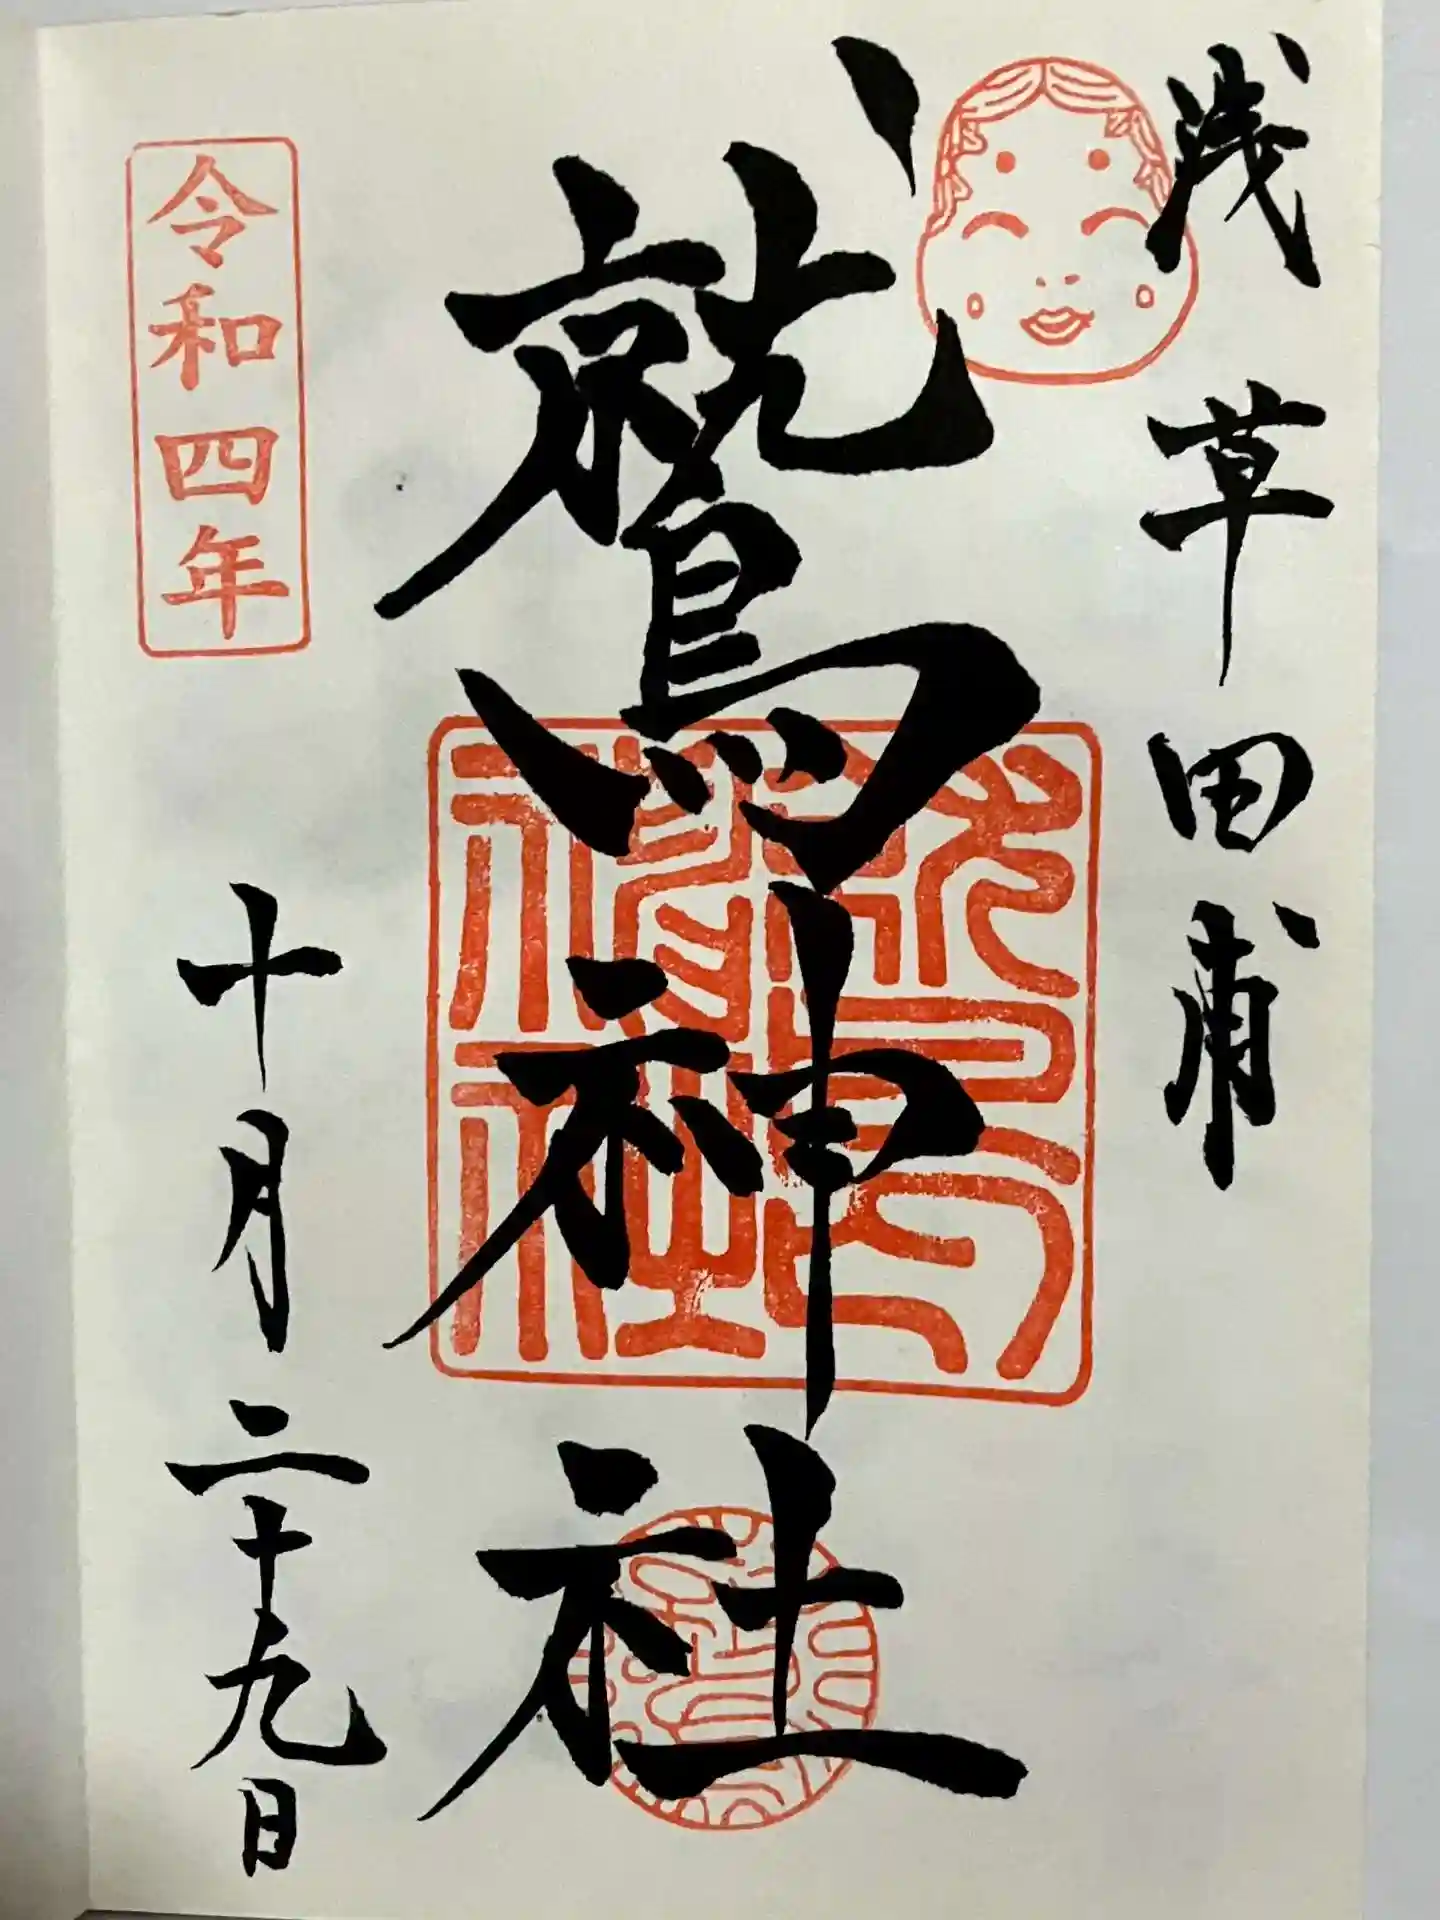 浅草田甫
鷲神社
鷲神社
令和四年
十月二十九日